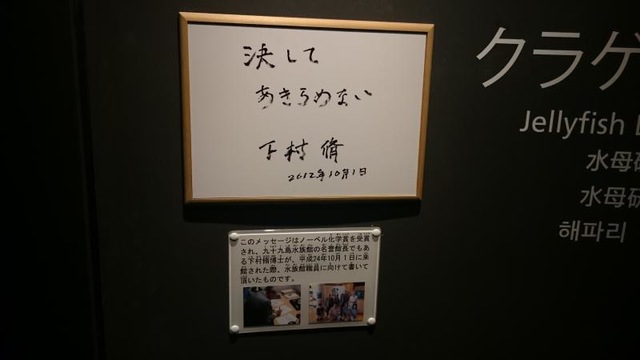 決して
あきらめない
下村 脩
2012年10月1日
このメッセージはノーベル化学賞を受賞
され、九十九島水族館の名誉館長でもあ
る下村脩博士が、平成24年10月1日に来
館された際、水族館職員に向けて書いて
頂いたものです。
クラゲ
Jellyfish
水母研
水母研
해파리